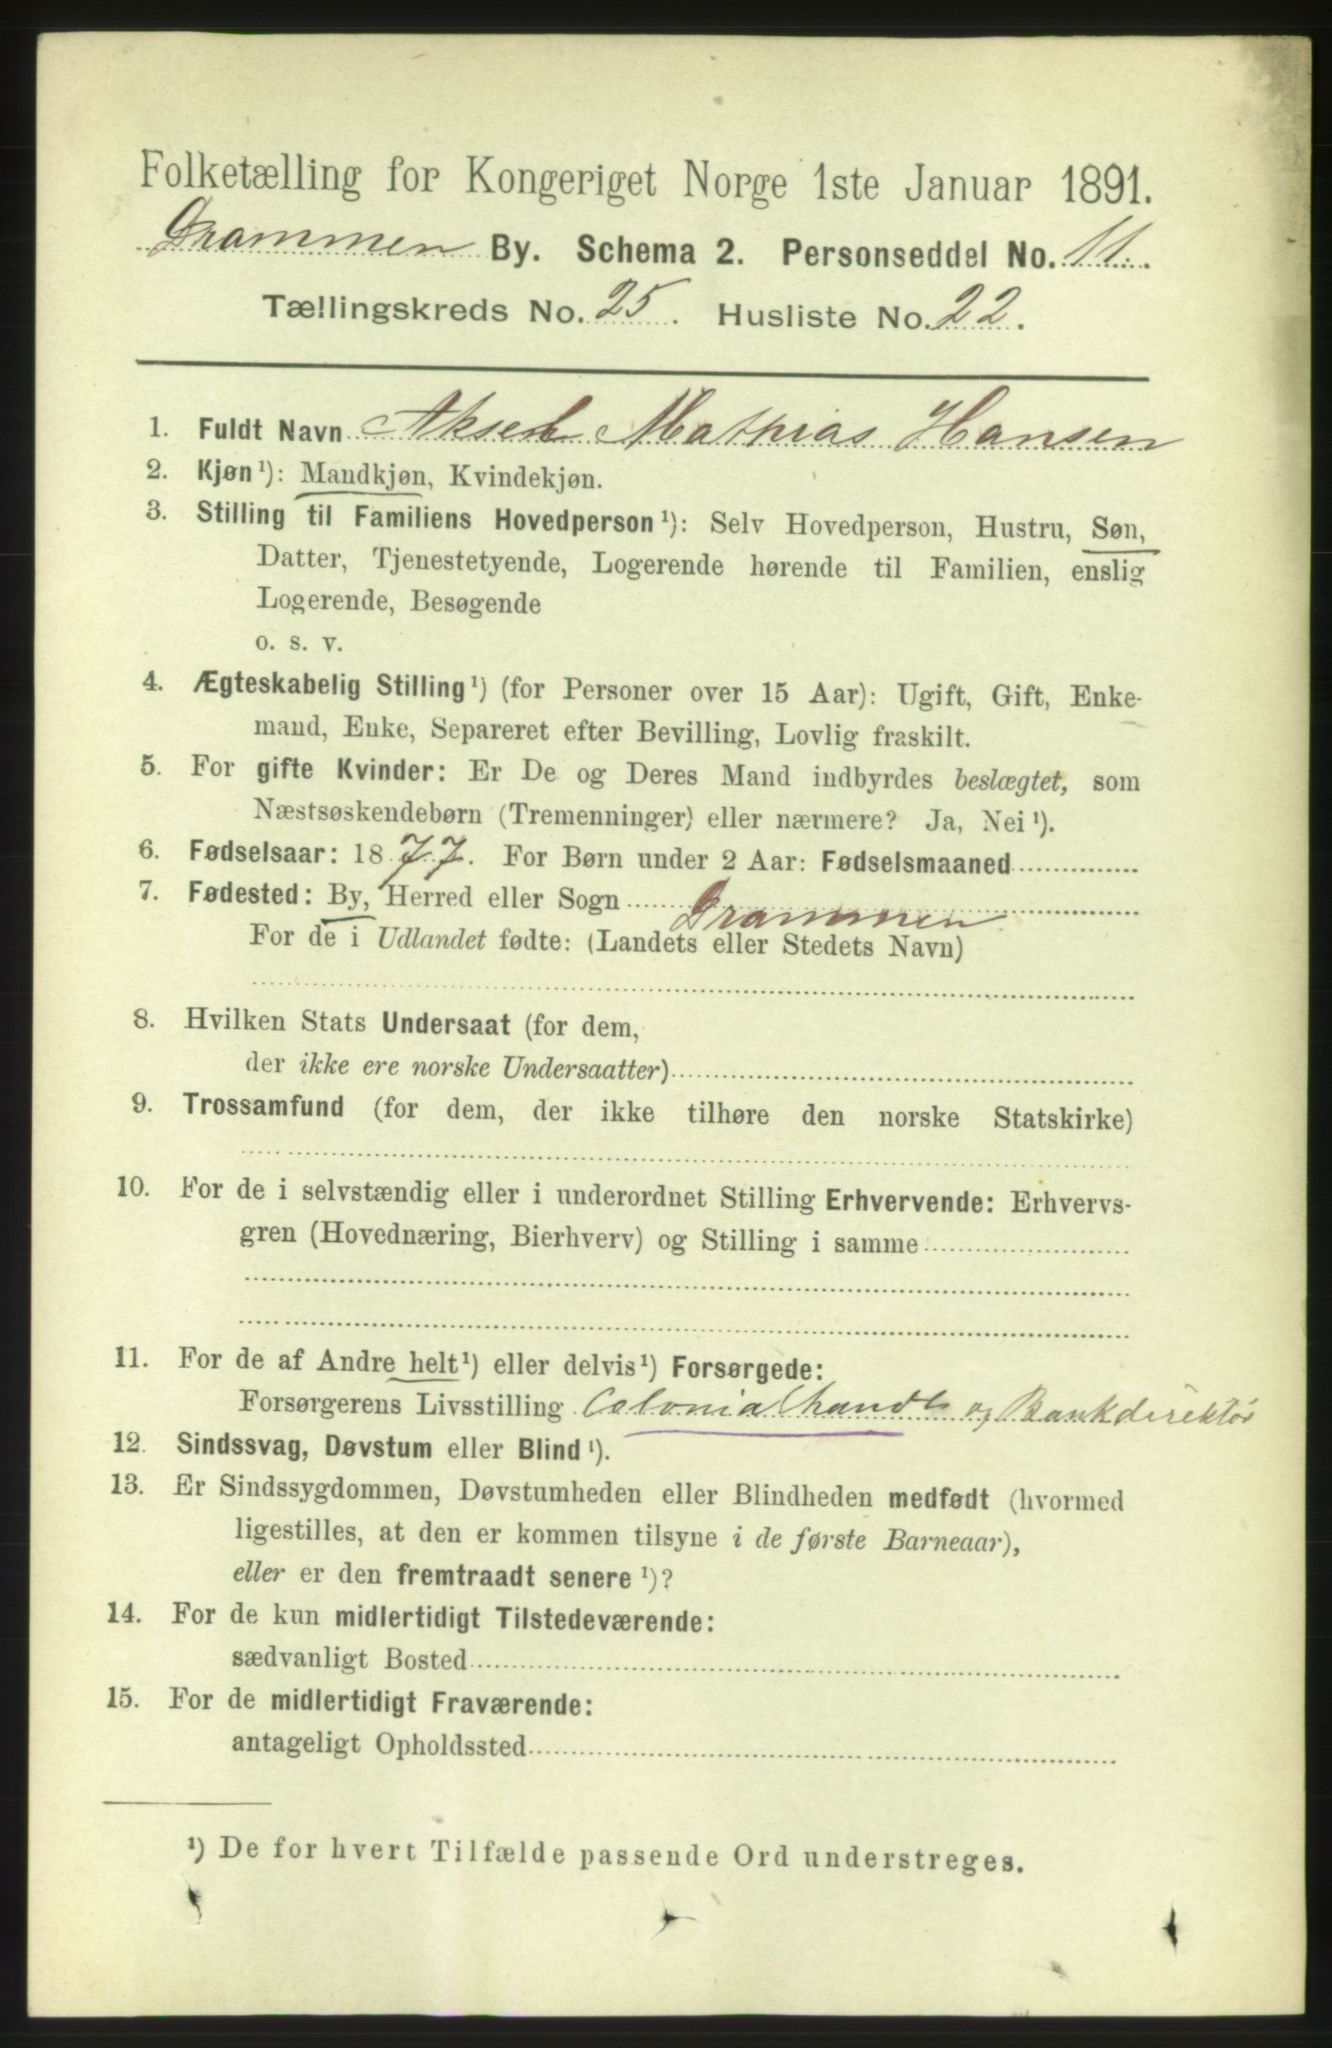 Folketælling for Kongeriget Norge 1ste Januar 1891.
Drammen By. Schema 2. Personseddel No. 11.
Tællingskreds No. 25. Husliste No. 22.
1. Fuldt Navn Aksel Mathias Hansen
2. Kjøn¹): Mandkjøn, Kvindekjøn.
3. Stilling til Familiens Hovedperson¹): Selv Hovedperson, Hustru, Søn,
Datter, Tjenestetyende, Logerende hørende til Familien, enslig
Logerende, Besøgende
o. s. v.
4. Ægteskabelig Stilling¹) (for Personer over 15 Aar): Ugift, Gift, Enke-
mand, Enke, Separeret efter Bevilling, Lovlig fraskilt.
5. For gifte Kvinder: Er De og Deres Mand indbyrdes beslægtet, som
Næstsøskendebørn (Tremenninger) eller nærmere? Ja, Nei¹).
6. Fødselsaar: 1877. For Børn under 2 Aar: Fødselsmaaned
7. Fødested: By, Herred eller Sogn Drammen
For de i Udlandet fødte: (Landets eller Stedets Navn)
8. Hvilken Stats Undersaat (for dem,
der ikke ere norske Undersaatter)
9. Trossamfund (for dem, der ikke tilhøre den norske Statskirke)
10. For de i selvstændig eller i underordnet Stilling Erhvervende: Erhvervs-
gren (Hovednæring, Bierhverv) og Stilling i samme
11. For de af Andre helt¹) eller delvis¹) Forsørgede:
Forsørgerens Livsstilling Colonialhandl og Bankdirektör
12. Sindssvag, Døvstum eller Blind¹).
13. Er Sindssygdommen, Døvstumheden eller Blindheden medfødt (hvormed
ligestilles, at den er kommen tilsyne i de første Barneaar),
eller er den fremtraadt senere¹)?
14. For de kun midlertidigt Tilstedeværende:
sædvanligt Bosted
15. For de midlertidigt Fraværende:
antageligt Opholdssted
¹) De for hvert Tilfælde passende Ord understreges.